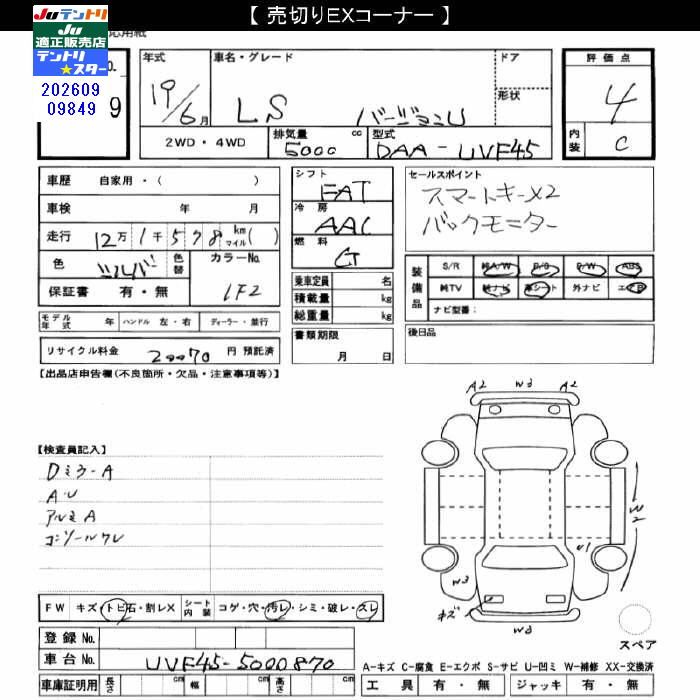 【 売切りEXコーナー 】
JUテントリ
JU
適正販売店
テントリ
★スター
202609
09849
9
年式
19/6月
車名・グレード
LS バージョンU
ドア
形状
評価点
4
内装
C
2WD・4WD
排気量
5000
cc
型式
DAA-UVF45
車歴 自家用・( )
車検 年 月
走行 12万1千578 km マイル( )
色 シルバ
色替
カラーNo.
1F2
保証書 有・無
シフト
FAT
冷房
AAC
燃料
G
乗車定員 名
積載量 kg
総重量 kg
セールスポイント
スマートキーX2
バックモニター
装備品
S/R 純A/W P/S P/W ABS
純TV 純ナビ 革シート 外ナビ エアB
ナビ型番:
モデル年式 年 ハンドル 左・右 ディーラー・並行
リサイクル料金 20070 円 預託済
書類期限
月 日
後日品
【出品店申告欄(不良箇所・欠品・注意事項等)】
【検査員記入】
Dミラ-A
A・U
アルミA
コンソールワレ
A2 W3 A2
W2
U1
W3
キズ
W3
スペア
FW キズ・トビ石・割レX
シート内装
コゲ・穴・汚レ・シミ・破レ・スレ
登録No.
車台No. UVF45-5000870
車庫証明用 長さ cm 幅 cm 高さ cm
A-キズ C-腐食 E-エクボ S-サビ U-凹ミ W-補修 XX-交換済
工具 有・無 ジャッキ 有・無